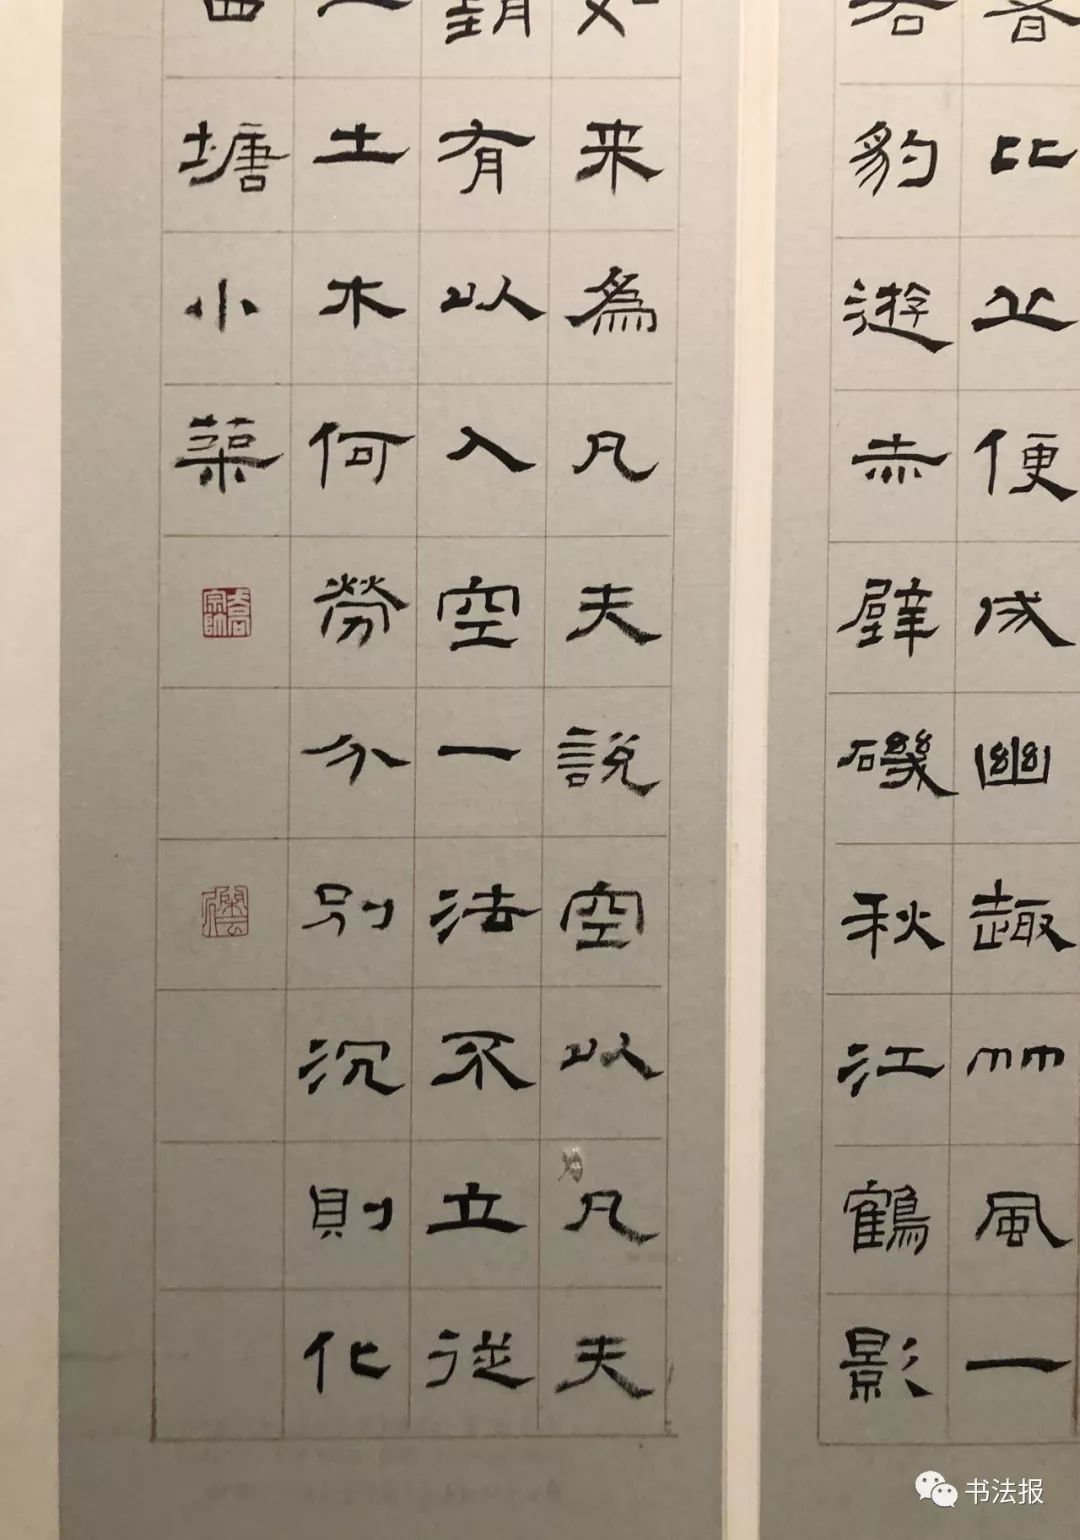 比便成幽趣竹風一
豹遊赤壁磯秋江鶴影
如来為凡夫說空以凡夫
有以入空一法不立從
土木何勞分別沉則化
塘小築
书法报